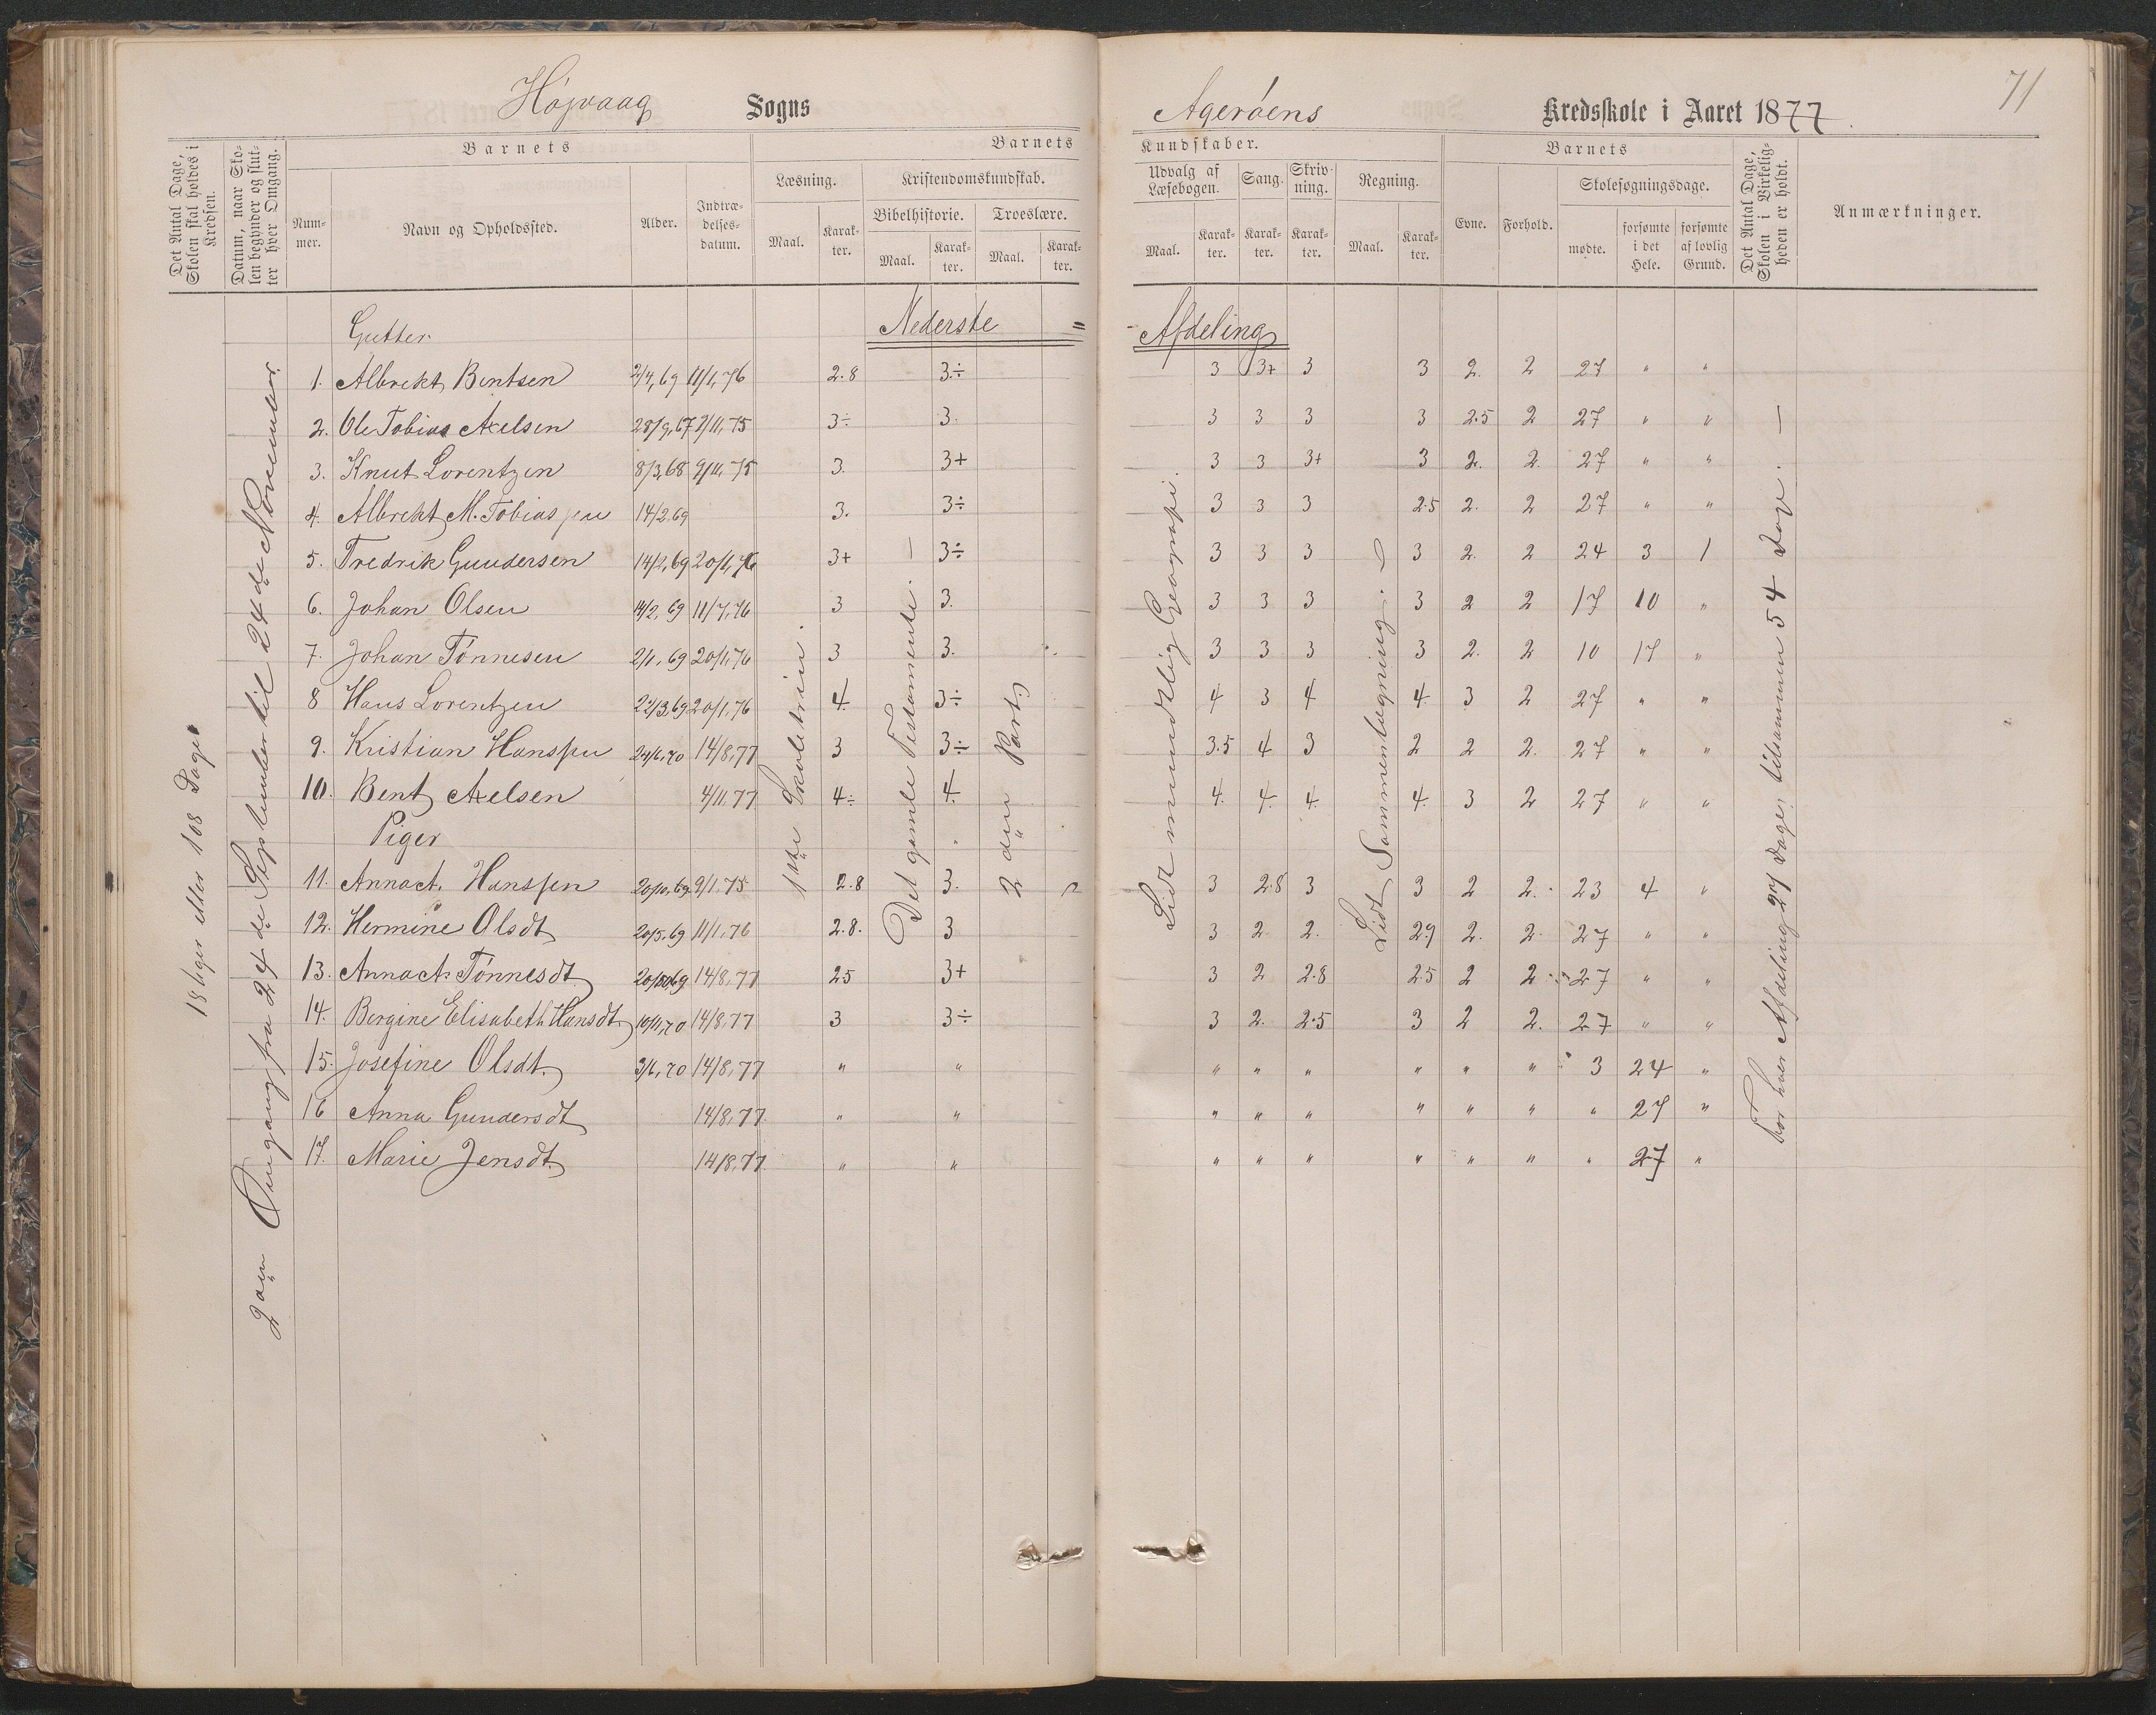 71
Højvaag Sogns Agerøens Kredsskole i Aaret 1877.
Det Antal Dage, Skolen skal holdes i Kredsen.
Datum, naar Skolen begynder og slutter hver Omgang.
Barnets
Nummer.
Navn og Opholdssted.
Alder.
Indtrædelsesdatum.
Barnets Kundskaber.
Læsning.
Maal.
Karakter.
Kristendomskundskab.
Bibelhistorie.
Maal.
Karakter.
Troeslære.
Maal.
Karakter.
Udvalg af Læsebogen.
Maal.
Karakter.
Sang.
Karakter.
Skrivning.
Karakter.
Regning.
Maal.
Karakter.
Barnets
Evne.
Forhold.
Skolesøgningsdage.
mødte.
forsømte i det Hele.
forsømte af lovlig Grund.
Det Antal Dage, Skolen i Virkeligheden er holdt.
Anmærkninger.
18 Uger eller 108 Dage
2den Omgang fra 24de September til 24de November.
Gutter. Nederste = Afdeling
1. Albrekt Bentsen 2/4, 69 11/1, 76 2.8 3÷ 3 3+ 3 3 2. 2 27 " "
2. Ole Tobias Axelsen 28/9, 67 9/11, 75 3÷ 3. 3 3 3 3 2.5 2 27 " "
3. Knut Lorentzen 8/3, 68 9/11, 75 3. 3+ 3 3 3+ 3 2. 2. 27 " "
4. Albrekt M. Tobiassen 14/2, 69 3. 3÷ 3 3 3 2.5 2. 2 27 " "
5. Fredrik Gundersen 14/2, 69 20/1, 76 3+ 3÷ 3 3 3 3 2. 2 24 3 1
6. Johan Olsen 14/2, 69 11/7, 76 3 3. 3 3 3 3 2 2 17 10 "
7. Johan Tønnesen 2/1, 69 20/1, 76 3 3. 3 3 3 3 2. 2 10 17 "
8 Hans Lorentzen 22/3, 69 20/1, 76 4. 3÷ 4 3 4 4. 3 2 27 " "
9. Kristian Hanssen 24/6, 70 14/8, 77 3 3÷ 3.5 4 3 2 2 2. 27 " "
10. Bent Axelsen 4/11, 77 4÷ 4. 4. 4. 4. 4. 3 2 27 " "
Piger
11. Anna A. Hanssen 20/10, 69 9/1, 75 2.8 3. 3 2.8 3 3 2 2. 23 4 "
12. Hermine Olsdt. 20/5, 69 11/1, 76 2.8. 3 3 2. 2. 2.9 2. 2. 27 " "
13. Anna A. Tønnesdt. 14/8, 77 2.5 3+ 3 2 2.8 2.5 2 2 27 " "
14. Bergine Elisabeth Hansdt. 10/11, 70 14/8, 77 3 3÷ 3 2. 2.5 3 2 2. 27 " "
15. Josefine Olsdt. 3/6, 70 14/8, 77 " " " " " " " " 3 24 "
16 Anna Gundersdt 14/8, 77. " " " " " " " " " 27 "
17. Marie Jensdt. 14/8, 77 " " " " " " " " " 27 "
1ste Skoletrin.
Det gamle Testamente. —
2den Part.
Lidt mundtlig Geografi.
Lidt Sammenlægning.
For hver Afdeling 27 Dage, tilsammen 54 Dage. —